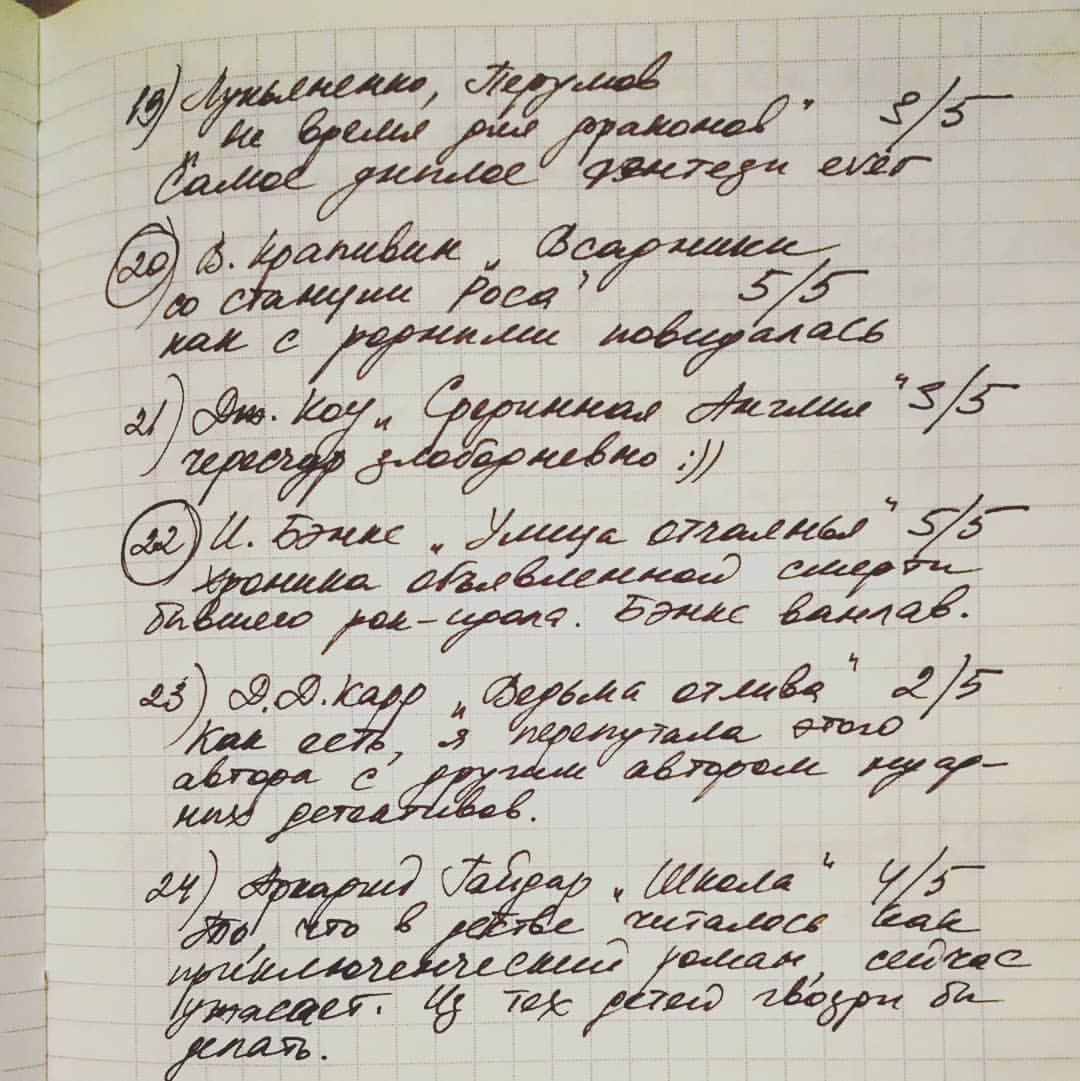 19) Лукьяненко, Перумов
„Не время для драконов“ 3/5
Самое унылое фэнтези ever
20) В. Крапивин „Всадники
со станции Роса“ 5/5
как с родными повидалась
21) Дж. Коу „Срединная Англия“ 3/5
чересчур злободневно :))
22) И. Бэнкс „Улица отчаянья“ 5/5
хроника объявленной смерти
бывшего рок-идола. Бэнкс ванлав.
23) Д.Д. Карр „Ведьма отлива“ 2/5
Как есть, я перепутала этого
автора с другим автором нуар-
ных детективов.
24) Аркадий Гайдар „Школа“ 4/5
То, что в детстве читалось как
приключенческий роман, сейчас
ужасает. Из тех детей гвозди бы
делать.